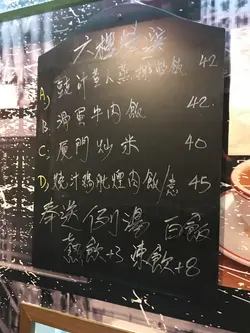 六
A, 豉汁 蒸排骨飯 42
B. 滑蛋牛肉飯 42.
C, 廈門炒米 40
D, 燒汁鴨肶煙肉飯/意 45
奉送 例湯 白飯
熱飲+3 凍飲+8